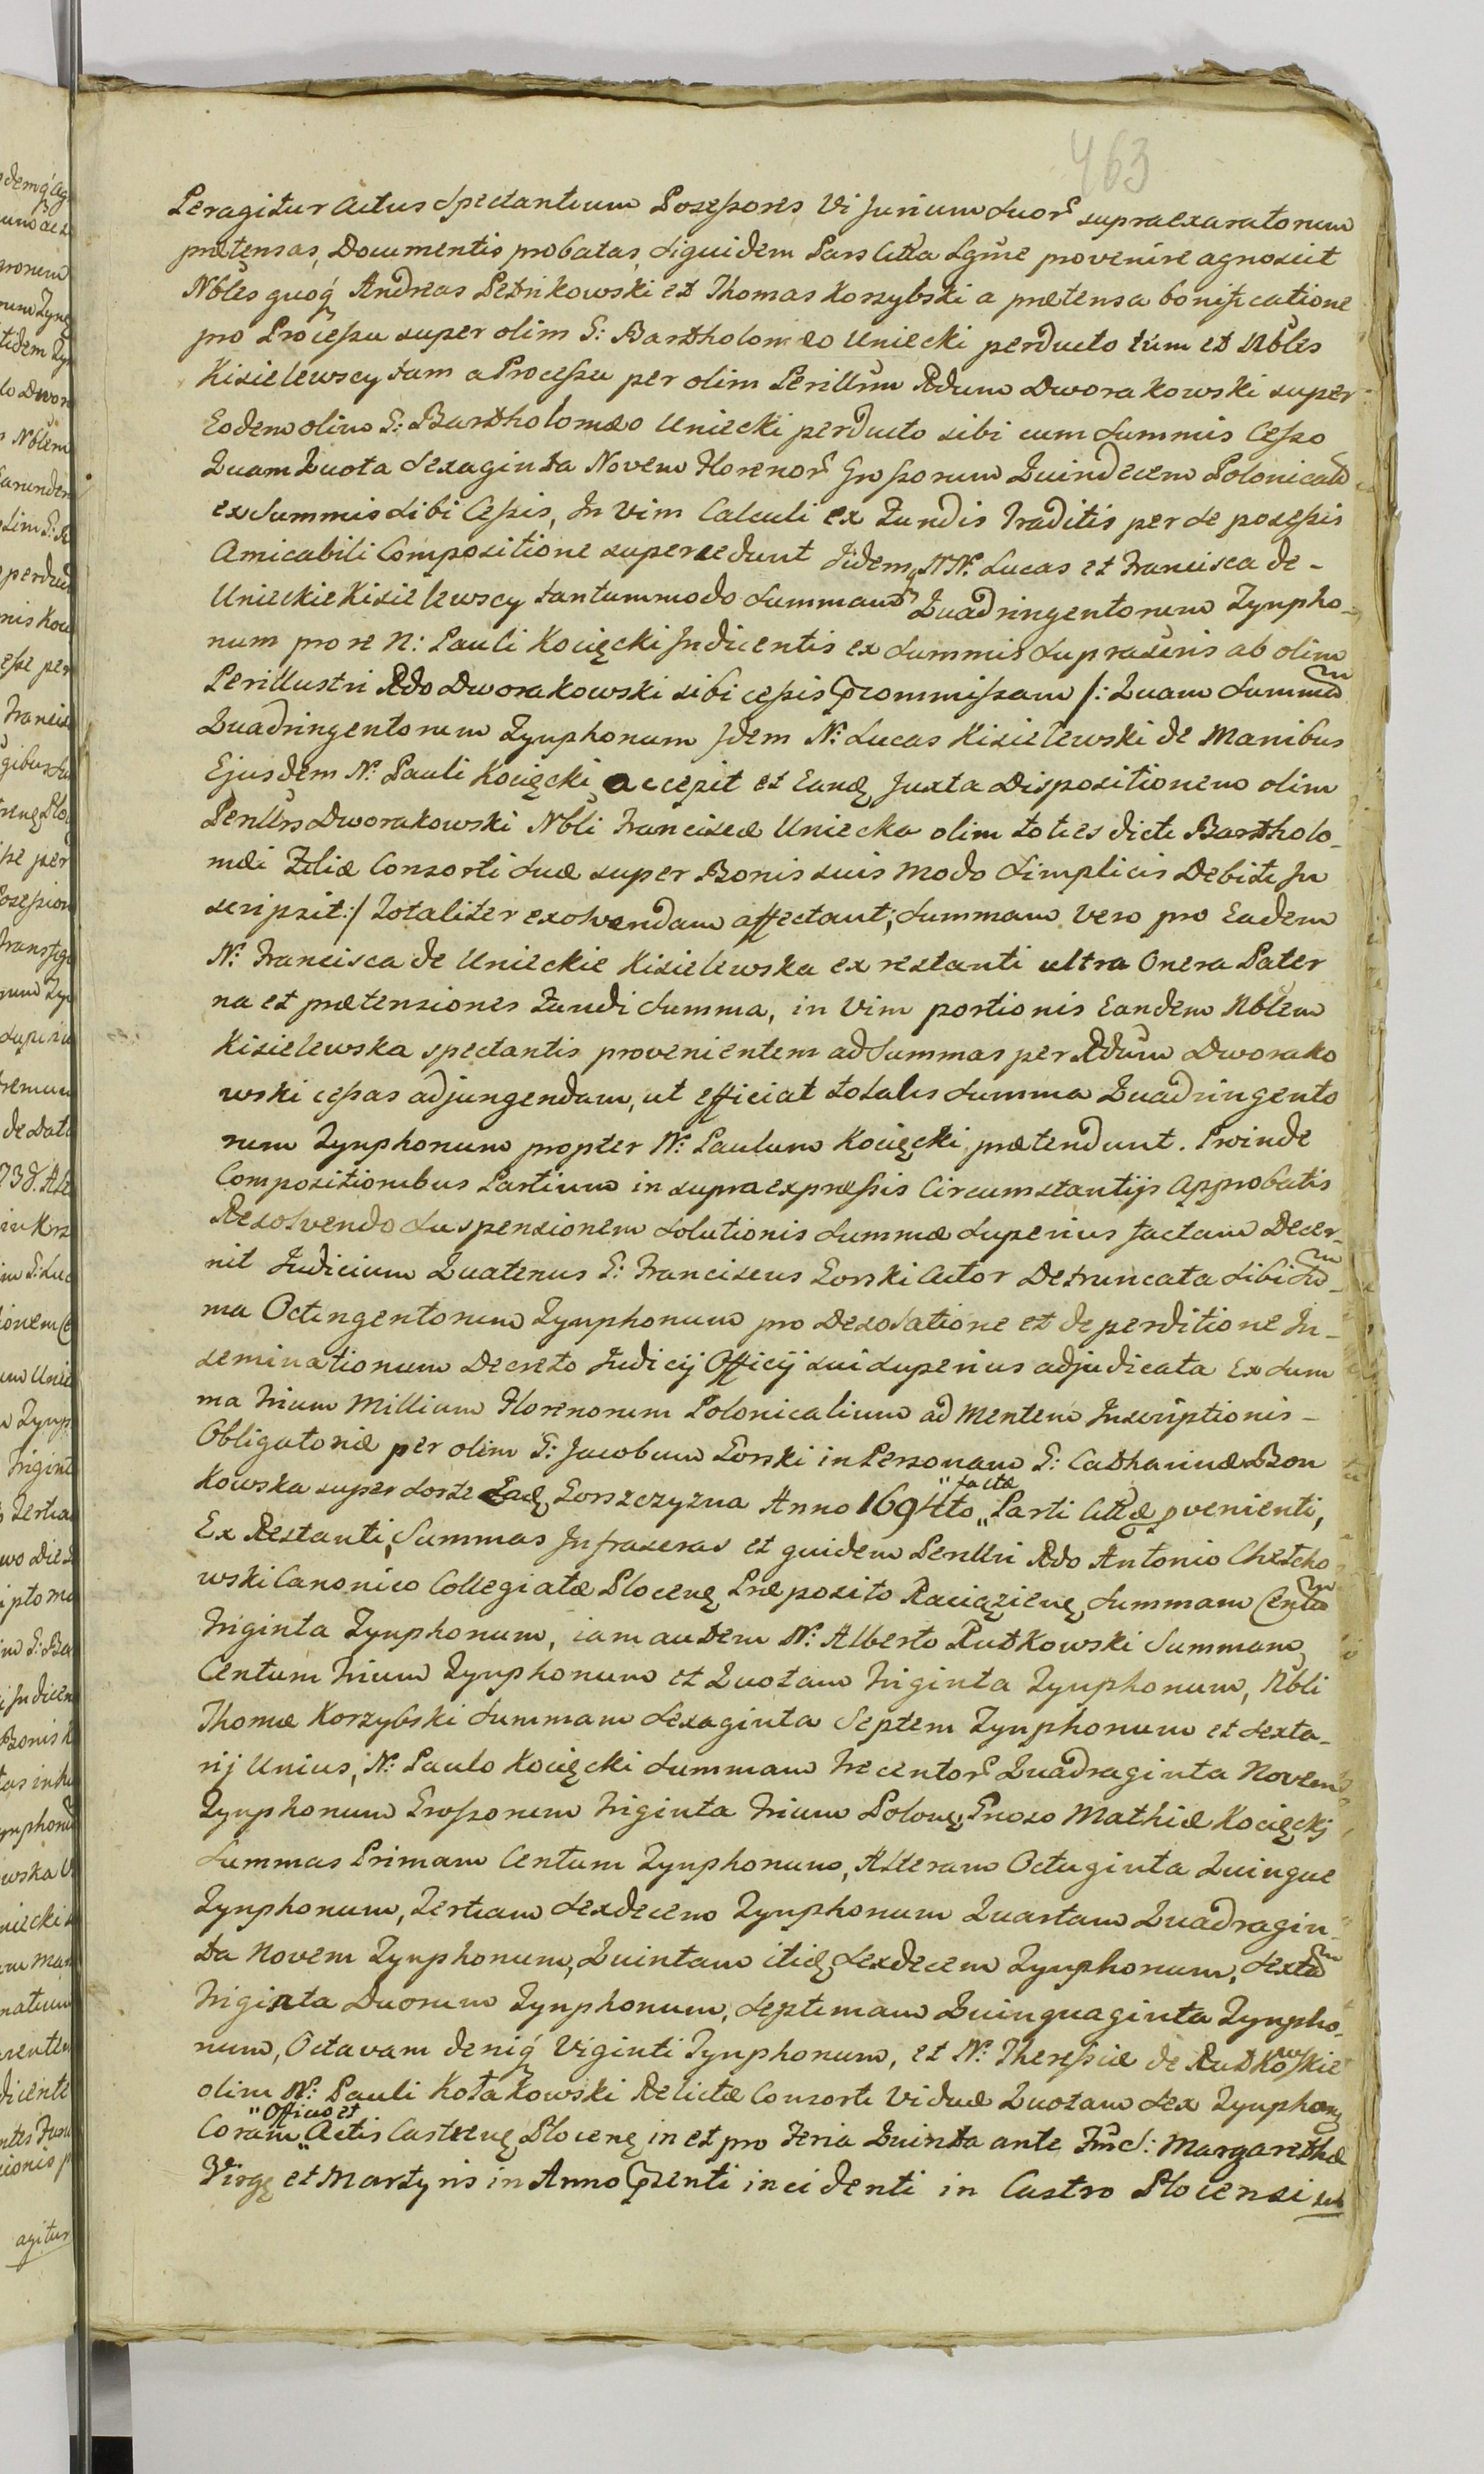 463
Peragitur Actus Spectantium Possessores Vi Jurium Suor supraexaratorum
prætensas, Documentis probatas, siquidem Pars Citta Lgme provenire agnoscit
Nbles quoq Andreas Petrikowski et Thomas Korzybski a prætensa bonificatione
pro Processu super olim G: Bartholomeo Uniecki perducto tum et Nbles
Kisielewscy tam a Processu per olim Perillum Rdum Dworakowski super
Eodem olim G: Bartholomæo Uniecki perducto sibi cum Summis Cesso
Quam Quota Sexaginta Novem Florenor Grossorum Quindecem Polonical
ex Summis Sibi Cessis, In Vim Calculi ex Fundis Traditis per se possessis
Amicabili Compositione supersedunt Iidemq NN. Lucas et Francisca de -
Unieckie Kisielewscy tantummodo Summam Quadringentorum Tynpho-
num pro re N: Pauli Kocięcki Indicentis ex Summis Supraseris ab olim
Perillustri Rdo Dworakowski sibi cessis promissam /: Quam Summã
Quadringentorum Tynphonum Idem N: Lucas Kisielewski de Manibus
Ejusdem N: Pauli Kocięcki accepit et Eandę Juxta Dispositionem olim
Perillris Dworakowski Nbli Franciscæ Uniecka olim toties dicti Bartholo-
mæi Filiæ Consorti Suæ super Bonis suis modo Simplicis Debiti In
scripsit :/ Totaliter exolvendam affectant; Summam Vero pro Eadem
N: Francisca de Unieckie Kisielewska ex restanti ultra Onera Pater
na et prætensiones Fundi Summa, in Vim portionis Eandem Nblem
Kisielewska spectantis provenientem ad Summas per Rdum Dworako
wski cessas adjungendam, ut efficiat totalis Summa Quadringento
rum Tynphonum propter N: Paulum Kocięcki prætendunt. Proinde
Compositionibus Partium in supra expressis Circumstantijs Approbatis
Resolvendo Suspensionem Solutionis Summæ Superius factam Decer-
nit Judicium Quatenus G: Franciscus Gorski Actor Detruncata Sibi Sũ-
ma Octingentorum Tynphonum pro Desolatione et deperditione In-
seminationum Decreto Judicij Officij sui superius adjudicata Ex Sum
ma Trium Millium Florenorum Polonicalium ad Mentem Inscriptionis -
Obligatoriæ per olim G: Jacobum Gorski in Personam G: Catharinæ Bon
kowska super Sorte Gorszczyzna Anno 1694to "factæ" Parti Cittæ pvenienti,
Ex Restanti, Summas Infraseras et quidem Perillri Rdo Antonio Chełcho
wski Canonico Collegiatæ Plocenę Præposito Raciązienę Summam Centũ
Triginta Tynphonum, iam autem N: Alberto Rutkowski Summam
Centum Trium Tynphonum et Quotam Triginta Tynphonum, Nbli
Thomæ Korzybski Summam Sexaginta Septem Tynphonum et Sexta-
rij Unius, N: Paulo Kocięcki Summam Trecentor Quadraginta Novem
Tynphonum Grossorum Triginta Trium Polonę, Gnoso Mathiæ Kocięckj
Summas Primam Centum Tynphonum, Alteram Octuginta Quinque
Tynphonum, Tertiam Sexdecem Tynphonum Quartam Quadragin-
ta Novem Tynphonum, Quintam itidę Sexdecem Tynphonum, Sextã
Triginta Duorum Tynphonum, Septimam Quinquaginta Tynpho-
num, Octavam deniq Viginti Tynphonum, et N: Theressiæ de Rutkowskie
olim N: Pauli Kołakowski Relictæ Consorti Viduæ Quotam Sex Tynphonę
Coram "Officio et" Actis Castrenę Plocenę in et pro Feria Quinta ante Fmc S: Margarethæ
Virgę et Martyris in Anno præsenti incidenti in Castro Plocensi sub